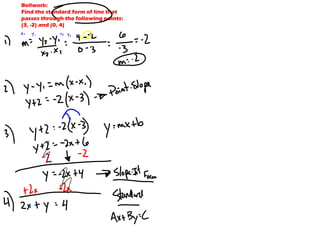 Bellwork:
Find the standard form of line that
passes through the following points:
(3, -2) and (0, 4)
x₁ y₁ x₂ y₂
1) m = y₂-y₁/x₂-x₁ = 4--2/0-3 = 6/-3 = -2
m=-2
2) y-y₁=m(x-x₁)
y+2=-2(x-3) → Point Slope
3) y+2=-2(x-3) y=mx+b
y+2=-2x+6
-2 -2
y=-2x+4 → Slope Int Form
+2x +2x Standard
4) 2x+y=4
Ax+By=C